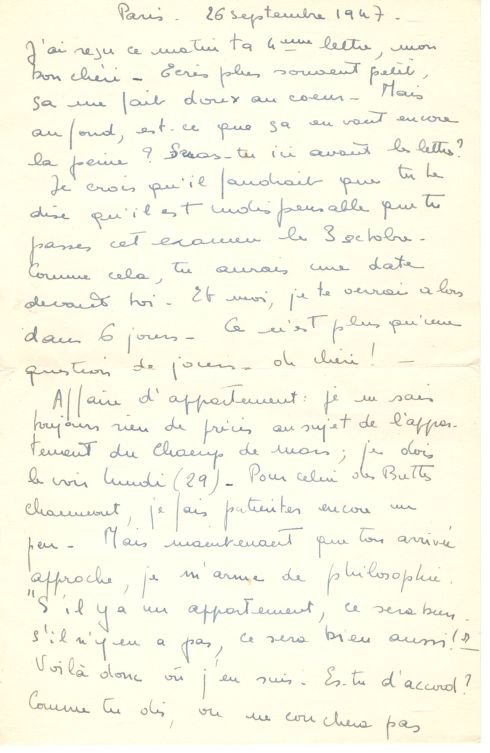 Paris - 26 septembre 1947 -
J'ai reçu ce matin ta 4ème lettre, mon
bon chéri - Ecris plus souvent petit,
ça me fait doux au coeur - Mais
au fond, est-ce que ça en vaut encore
la peine ? Seras-tu ici avant les lettres ?
Je crois qu'il faudrait que tu te
dise qu'il est indispensable que tu
passes cet examen le 3 octobre -
Comme cela, tu aurais une date
devant toi - Et moi, je te verrai alors
dans 6 jours - Ce n'est plus qu'une
question de jours - oh chéri ! -
Affaire d'appartement : je ne sais
toujours rien de précis au sujet de l'appar-
tement du Champ de mars ; je dois
le voir lundi (29) - Pour celui des Buttes
chaumont, je fais patienter encore un
peu - Mais maintenant que ton arrivée
approche, je m'arme de philosophie.
"S'il y a un appartement, ce sera bien.
s'il n'y en a pas, ce sera bien aussi !"
Voilà donc où j'en suis - Es-tu d'accord ?
Comme tu dis, on ne couchera pas